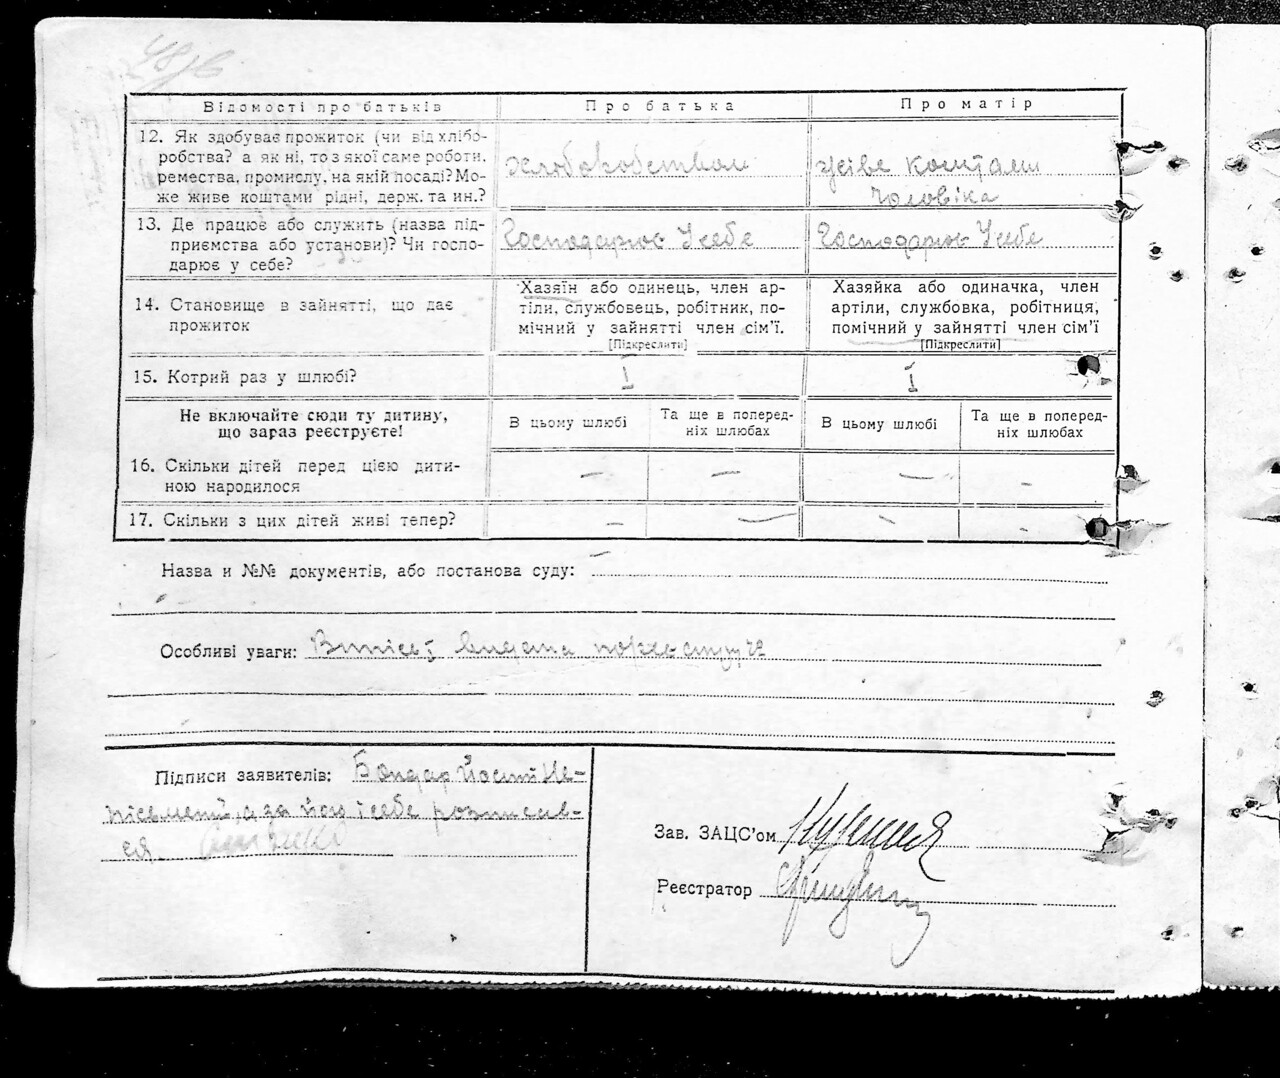 48зв
Відомості про батьків
Про батька
Про матір
12. Як здобуває прожиток (чи від хлібо-
робства? а як ні, то з якої саме роботи,
ремества, промислу, на якій посаді? Мо-
же живе коштами рідні, держ. та ин.?
Хліборобством
Живе коштами
чоловіка
13. Де працює або служить (назва під-
приємства або установи)? Чи госпо-
дарює у себе?
Господарює у себе
Господарює у себе
14. Становище в зайнятті, що дає
прожиток
Хазяїн або одинець, член ар-
тіли, службовець, робітник, по-
мічний у зайнятті член сім’ї.
[Підкреслити]
Хазяйка або одиначка, член
артіли, службовка, робітниця,
помічний у зайнятті член сім’ї
[Підкреслити]
15. Котрий раз у шлюбі?
I
I
Не включайте сюди ту дитину,
що зараз реєструєте!
В цьому шлюбі
Та ще в поперед-
ніх шлюбах
В цьому шлюбі
Та ще в поперед-
ніх шлюбах
16. Скільки дітей перед цією дити-
ною народилося
—
—
—
-
17. Скільки з цих дітей живі тепер?
—
—
-
-
Назва и №№ документів, або постанова суду: —
Особливі уваги:
Підписи заявителів: Бондар не-
пісьмений, а за його і себе розписав-
ся
Зав. ЗАЦС’ом
Реєстратор